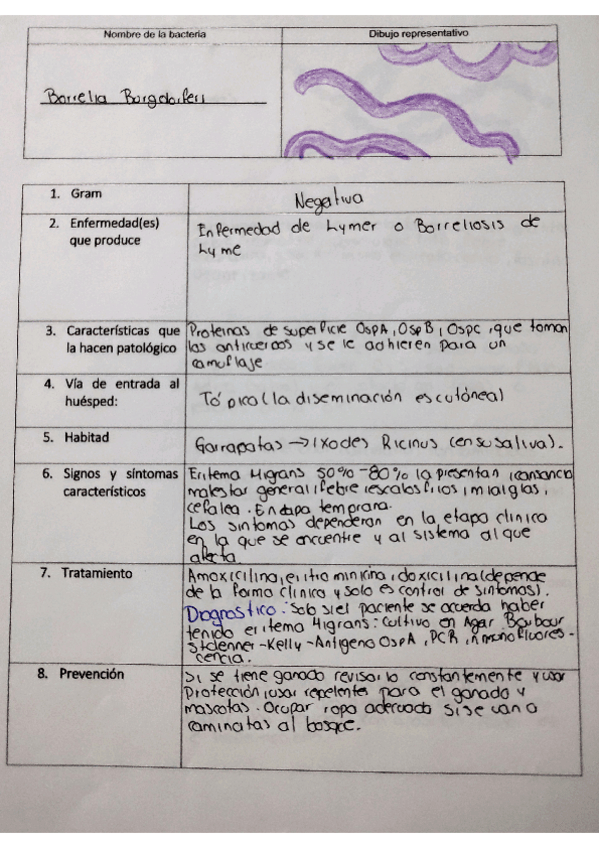 Nombre de la bacteria
Dibujo representativo
Borrelia Burgdorferi
1. Gram
Negativa
2. Enfermedad(es)
que produce
Enfermedad de Lymer o Borreliosis de
Lyme
3. Características que
la hacen patológico
Proteinas de superficie OspA, OspB, OspC, que toman
los anticuerpos y se le adhieren para un
camuflaje
4. Vía de entrada al
huésped:
Tópico (la diseminación es cutónea)
5. Habitad
Garrapatas → Ixodes Ricinus (en su saliva).
6. Signos y síntomas
característicos
Eritema Migrans 50% - 80% la presentan, cansancio
malestar general, fiebre, escalosfrios, mialgias,
cefalea. En etapa temprana.
Los sintomas dependeran en la etapa clinico
en la que se encuentre y al sistema al que
afecta.
7. Tratamiento
Amoxicilina, eritrominicina, doxicilina (depende
de la forma clinica y solo es control de sintomas).
Diagnostico: Solo si el paciente se acuerda haber
tenido eritema Migrans: Cultivo en Agar Barbour
Stoenner-Kelly - Antigeno OspA, PCR, inmunofluores-
cencia.
8. Prevención
Si se tiene ganado revisarlo constantemente y usar
Protección, usar repelentes para el ganado y
mascotas. Ocupar ropa adecuada si se van a
caminatas al bosque.